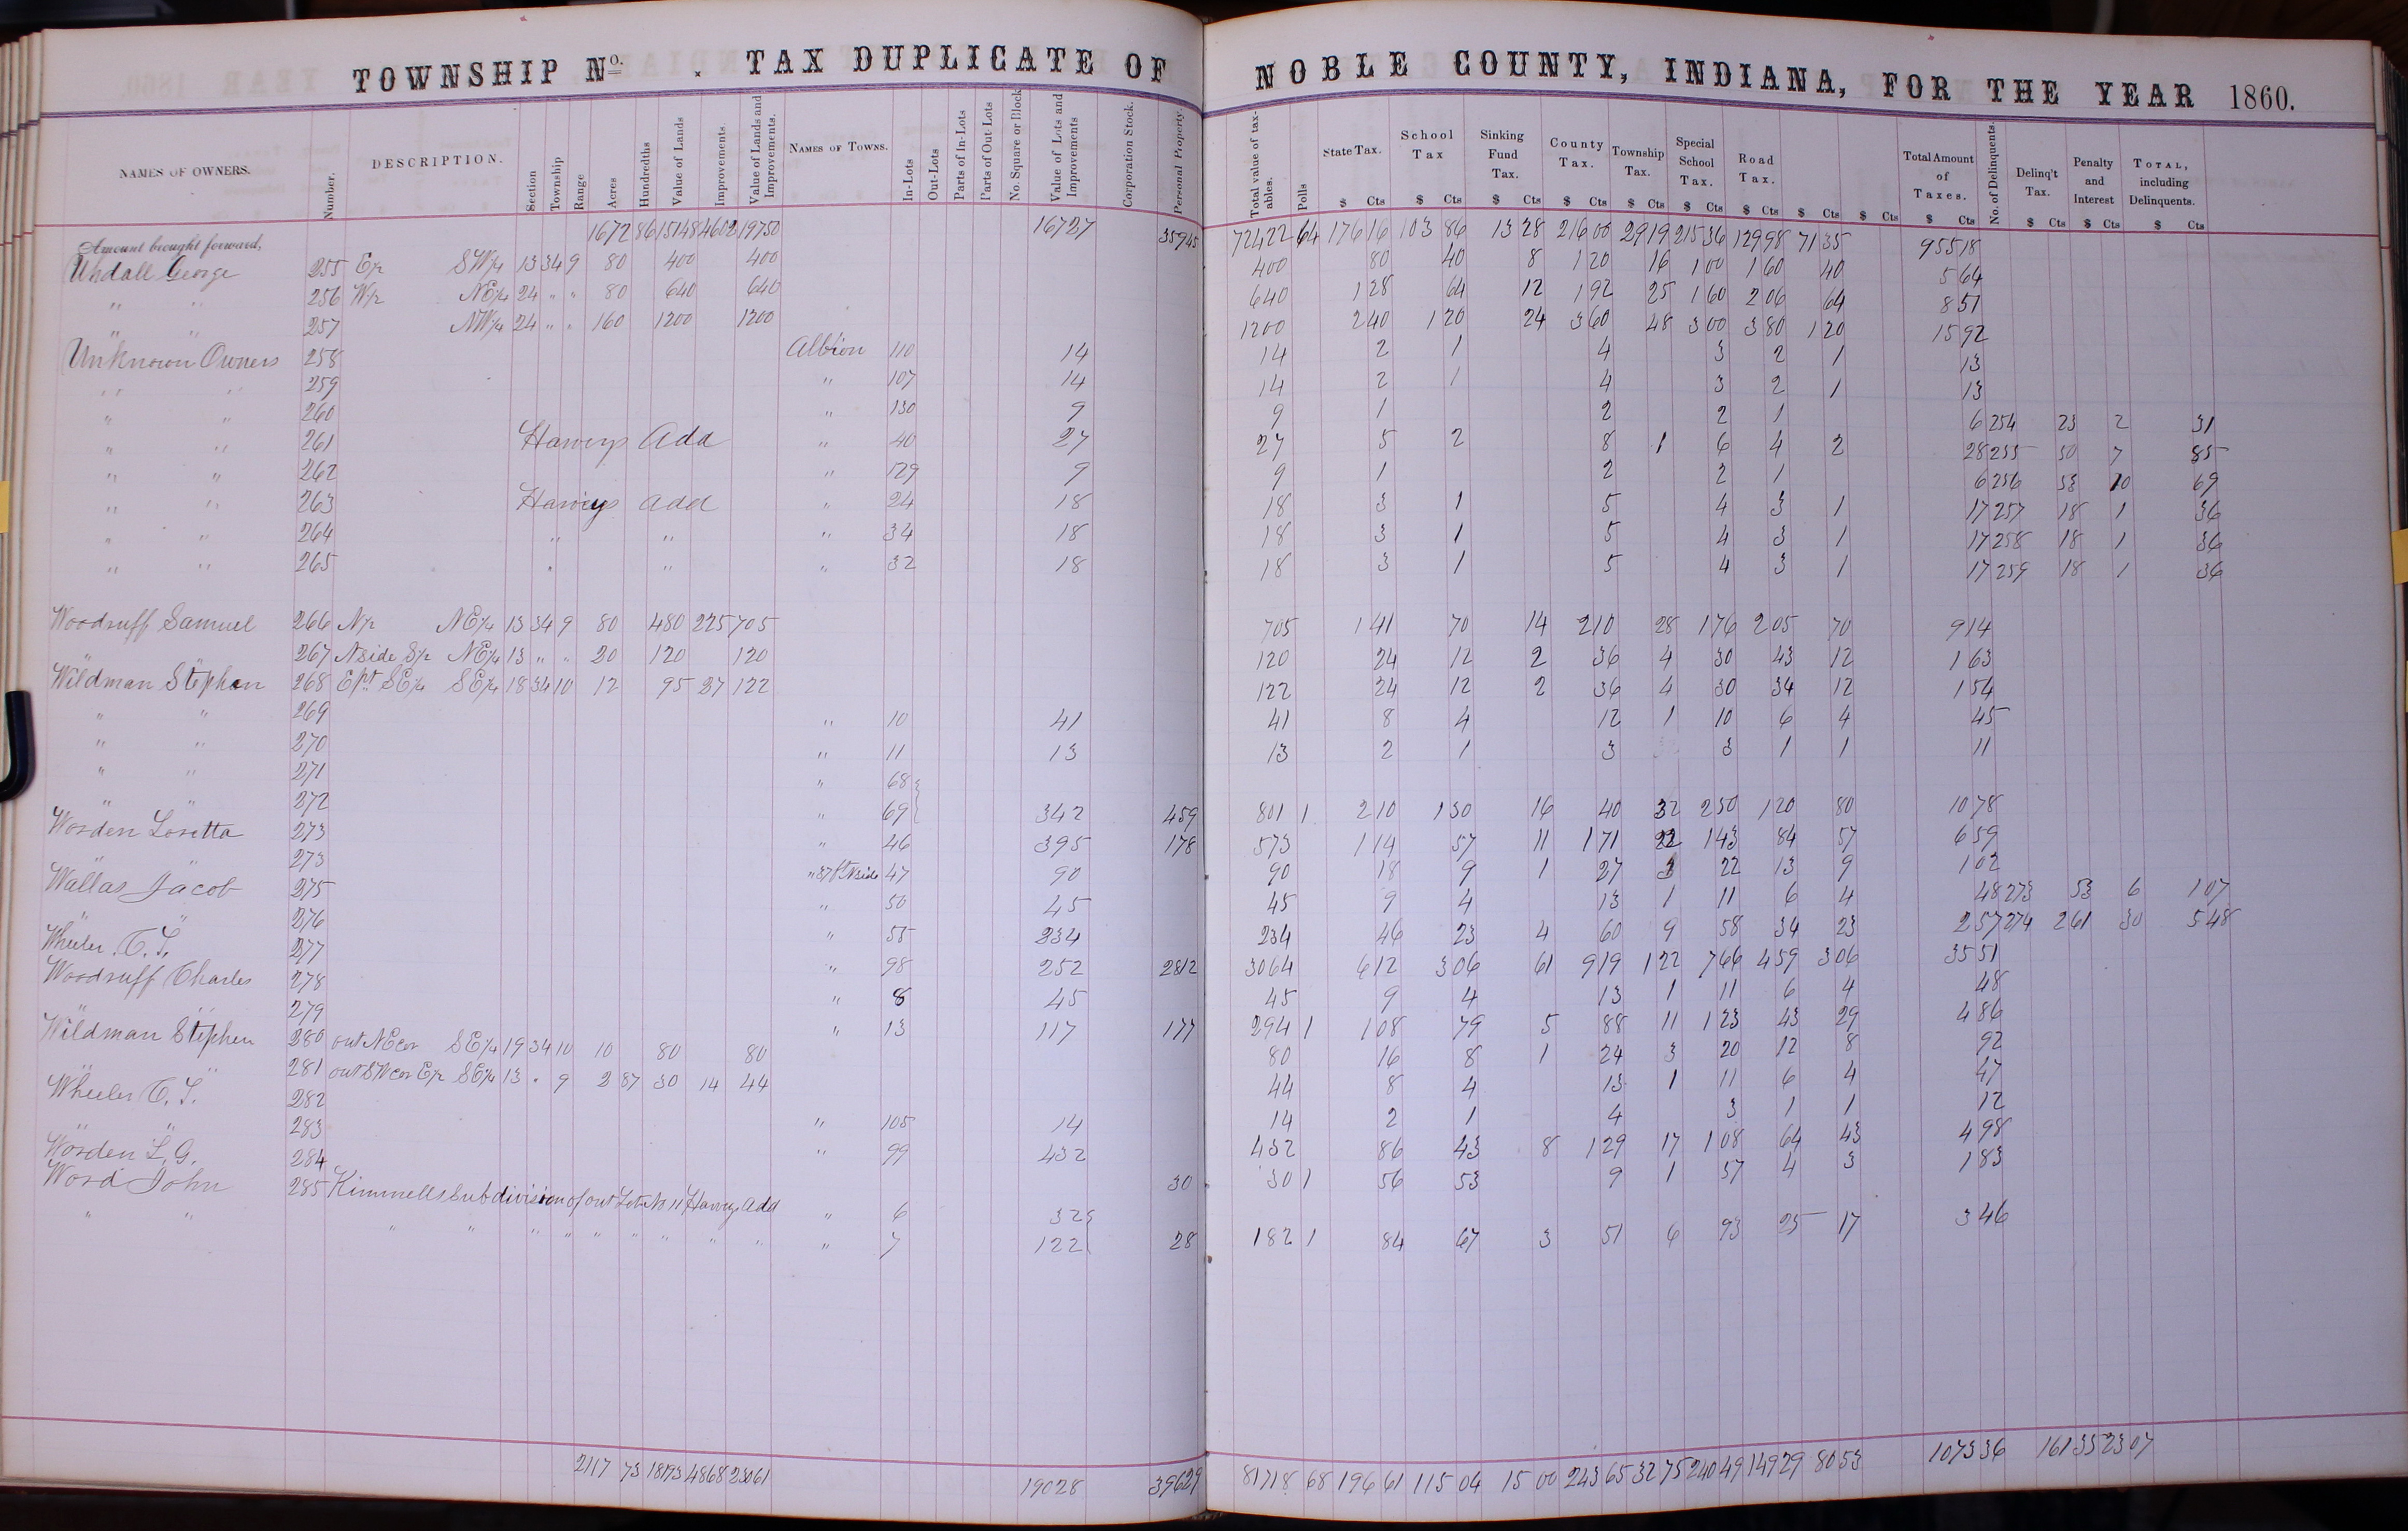 TOWNSHIP No. . TAX DUPLICATE OF NOBLE COUNTY, INDIANA, FOR THE YEAR 1860.
NAMES OF OWNERS. Number. DESCRIPTION. Section Township Range Acres Hundredths Value of Lands Improvements. Value of Lands and Improvements. NAMES OF TOWNS. In-Lots Out-Lots Parts of In-Lots Parts of Out-Lots No. Square or Block Value of Lots and Improvements Corporation Stock. Personal Property. Total value of taxables. Polls State Tax. School Tax Sinking Fund Tax. County Tax. Township Tax. Special School Tax. Road Tax. Total Amount of Taxes. No. of Delinquents. Delinq't Tax. Penalty and Interest TOTAL, including Delinquents.
$ Cts $ Cts $ Cts $ Cts $ Cts $ Cts $ Cts $ Cts $ Cts $ Cts $ Cts $ Cts $ Cts
Amount brought forward, 1672 86 15148 4602 19750 16727 35945 72422 64 176 16 103 86 13 28 216 00 29 19 215 36 129 98 71 35 955 18
Undall George 255 E½ SW¼ 13 34 9 80 400 400 400 80 40 8 1 20 16 1 00 1 60 40 5 64
" " 256 W½ NE¼ 24 " " 80 640 640 640 1 28 64 12 1 92 25 1 60 2 06 64 8 51
" " 257 NW¼ 24 " " 160 1200 1200 1200 2 40 1 20 24 3 60 48 3 00 3 80 1 20 15 92
Unknown Owners 258 Albion 110 14 14 2 1 4 3 2 1 13
" " 259 " 107 14 14 2 1 4 3 2 1 13
" " 260 " 130 9 9 1 2 2 1 6 254 23 2 31
" " 261 Harveys Add " 40 27 27 5 2 8 1 6 4 2 28 255 50 7 85
" " 262 " 129 9 9 1 2 2 1 6 256 53 10 69
" " 263 Harveys Add " 24 18 18 3 1 5 4 3 1 17 257 18 1 36
" " 264 " " " 34 18 18 3 1 5 4 3 1 17 258 18 1 36
" " 265 " " " 32 18 18 3 1 5 4 3 1 17 259 18 1 36
Woodruff Samuel 266 N½ NE¼ 13 34 9 80 480 225 705 705 1 41 70 14 2 10 28 1 76 2 05 70 9 14
" " 267 N side S½ NE¼ 13 " " 20 120 120 120 24 12 2 36 4 30 43 12 1 63
Wildman Stephen 268 E pt SE¼ SE¼ 18 34 10 12 95 27 122 122 24 12 2 36 4 30 34 12 1 54
" " 269 " 10 41 41 8 4 12 1 10 6 4 45
" " 270 " 11 13 13 2 1 3 3 1 1 11
" " 271 " 68
" " 272 " 69 342 459 801 1 2 10 1 30 16 40 32 2 50 1 20 80 10 78
Worden Loretta 273 " 46 395 178 573 1 14 57 11 1 71 22 1 43 84 57 6 59
" " 273 " 37 ft N side 47 90 90 18 9 1 27 3 22 13 9 1 02
Wallas Jacob 275 " 50 45 45 9 4 13 1 11 6 4 48 273 53 6 1 07
" " 276 " 55 234 234 46 23 4 60 9 58 34 23 2 57 274 2 61 30 5 48
Wheeler C. T. 277 " 98 252 2812 3064 6 12 3 06 61 9 19 1 22 7 66 4 59 3 06 35 51
Woodruff Charles 278 " 8 45 45 9 4 13 1 11 6 4 48
" " 279 " 13 117 177 294 1 1 08 79 5 88 11 1 23 43 29 4 86
Wildman Stephen 280 out NE cor SE¼ 19 34 10 10 80 80 80 16 8 1 24 3 20 12 8 92
" " 281 out SW cor E½ SE¼ 13 " 9 2 87 30 14 44 44 8 4 13 1 11 6 4 47
Wheeler C. T. 282 " 105 14 14 2 1 4 3 1 1 12
" " 283 " 99 432 432 86 43 8 1 29 17 1 08 64 43 4 98
Worden L. G. 284 30 30 1 56 53 9 1 57 4 3 1 83
Word John 285 Kimmells Subdivision of out Lot No 11 Harveys Add " 6 32
" " " " " " " " " " " " 7 122 28 182 1 84 67 3 51 6 93 25 17 3 46
2117 73 18193 4868 23061 19028 39629 81718 68 196 61 115 04 15 00 243 65 32 75 240 49 149 29 80 53 1073 36 161 35 23 07